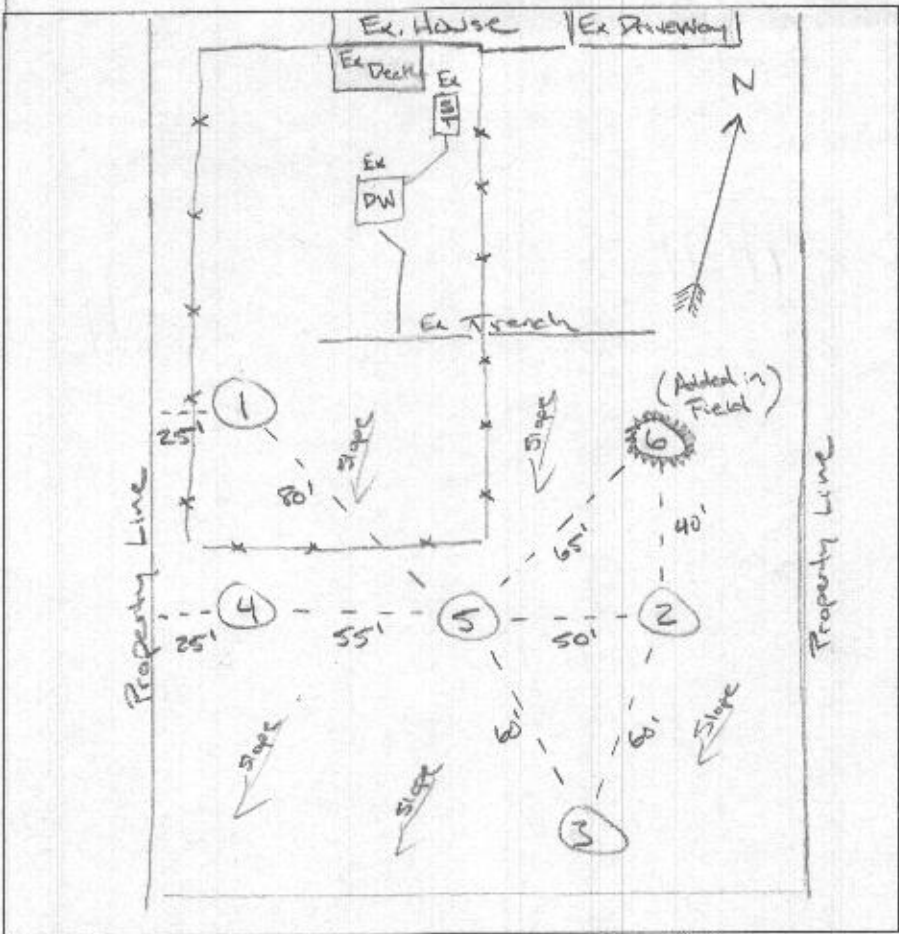 Ex. House
Ex Driveway
Ex
Deck
Ex
N
Ex
DW
Ex Trench
(Added in
Field)
1
25'
Slope
Slope
6
80'
65'
40'
Property Line
Property Line
4
5
2
25'
55'
50'
Slope
Slope
60'
60'
Slope
3